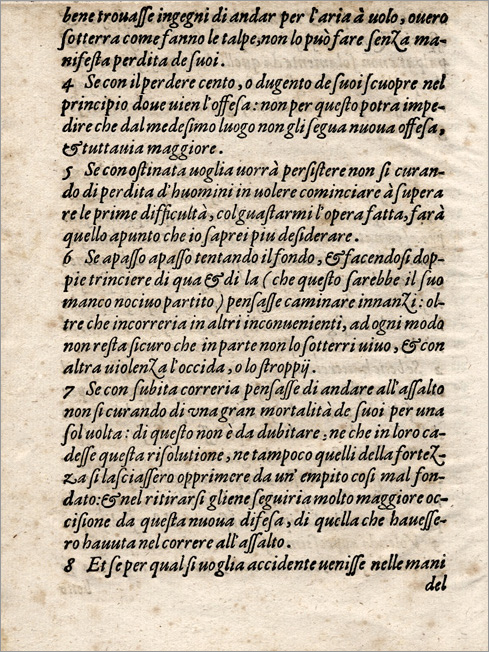 bene trouasse ingegni di andar per l'aria à uolo, ouero
sotterra come fanno le talpe, non lo può fare senza ma-
nifesta perdita de suoi.
4 Se con il perdere cento, o dugento de suoi scuopre nel
principio doue uien l'offesa: non per questo potra impe-
dire che dal medesimo luogo non gli segua nuoua offesa,
& tuttauia maggiore.
5 Se con ostinata uoglia uorrà persistere non si curan-
do di perdita d'huomini in uolere cominciare à supera
re le prime difficultà, col guastarmi l'opera fatta, farà
quello apunto che io saprei piu desiderare.
6 Se apasso apasso tentando il fondo, & facendosi dop-
pie trinciere di qua & di la (che questo sarebbe il suo
manco nociuo partito) pensasse caminare innanzi: ol-
tre che incorreria in altri inconuenienti, ad ogni modo
non resta sicuro che in parte non lo sotterri uiuo, & con
altra uiolenza l'occida, o lo stroppij.
7 Se con subita correria pensasse di andare all'assalto
non si curando di vna gran mortalità de suoi per una
sol uolta: di questo non è da dubitare, ne che in loro ca-
desse questa risolutione, ne tampoco quelli della fortez-
za si lasciassero opprimere da un' empito cosi mal fon-
dato: & nel ritirarsi gliene seguiria molto maggiore oc-
cisione da questa nuoua difesa, di quella che hauesse-
ro hauuta nel correre all'assalto.
8 Et se per qual si uoglia accidente uenisse nelle mani
del